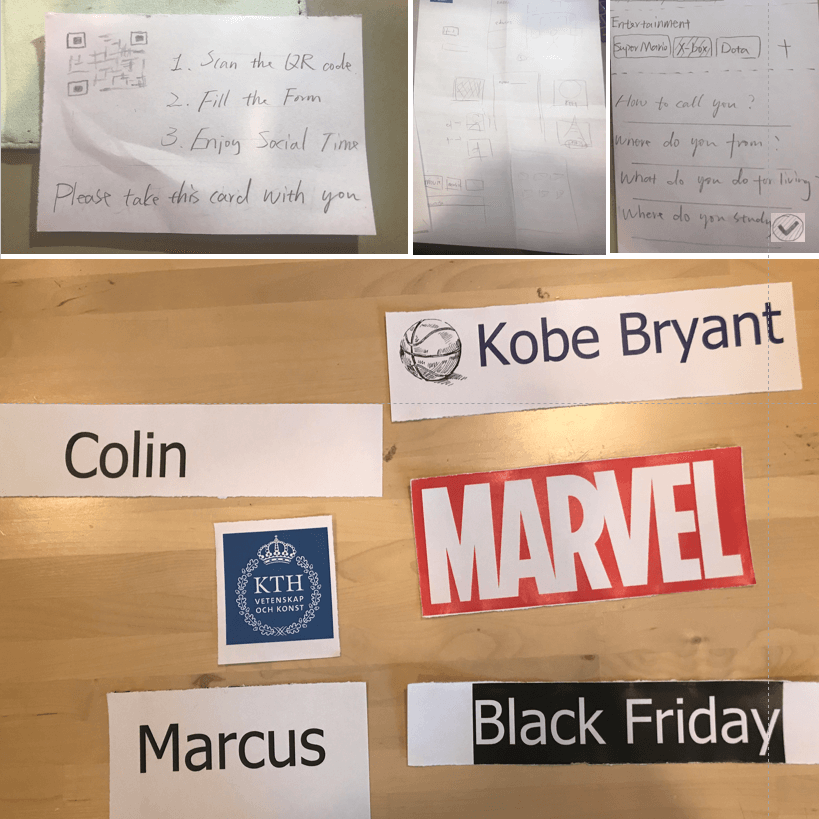 1. Scan the QR code
2. Fill the Form
3. Enjoy Social Time
Please take this card with you
Entertainment
Super Mario
X-box
Data
+
How to call you ?
Where do you from :
What do you do for living
Where do you study
Kobe Bryant
Colin
MARVEL
KTH
VETENSKAP
OCH KONST
Marcus
Black Friday